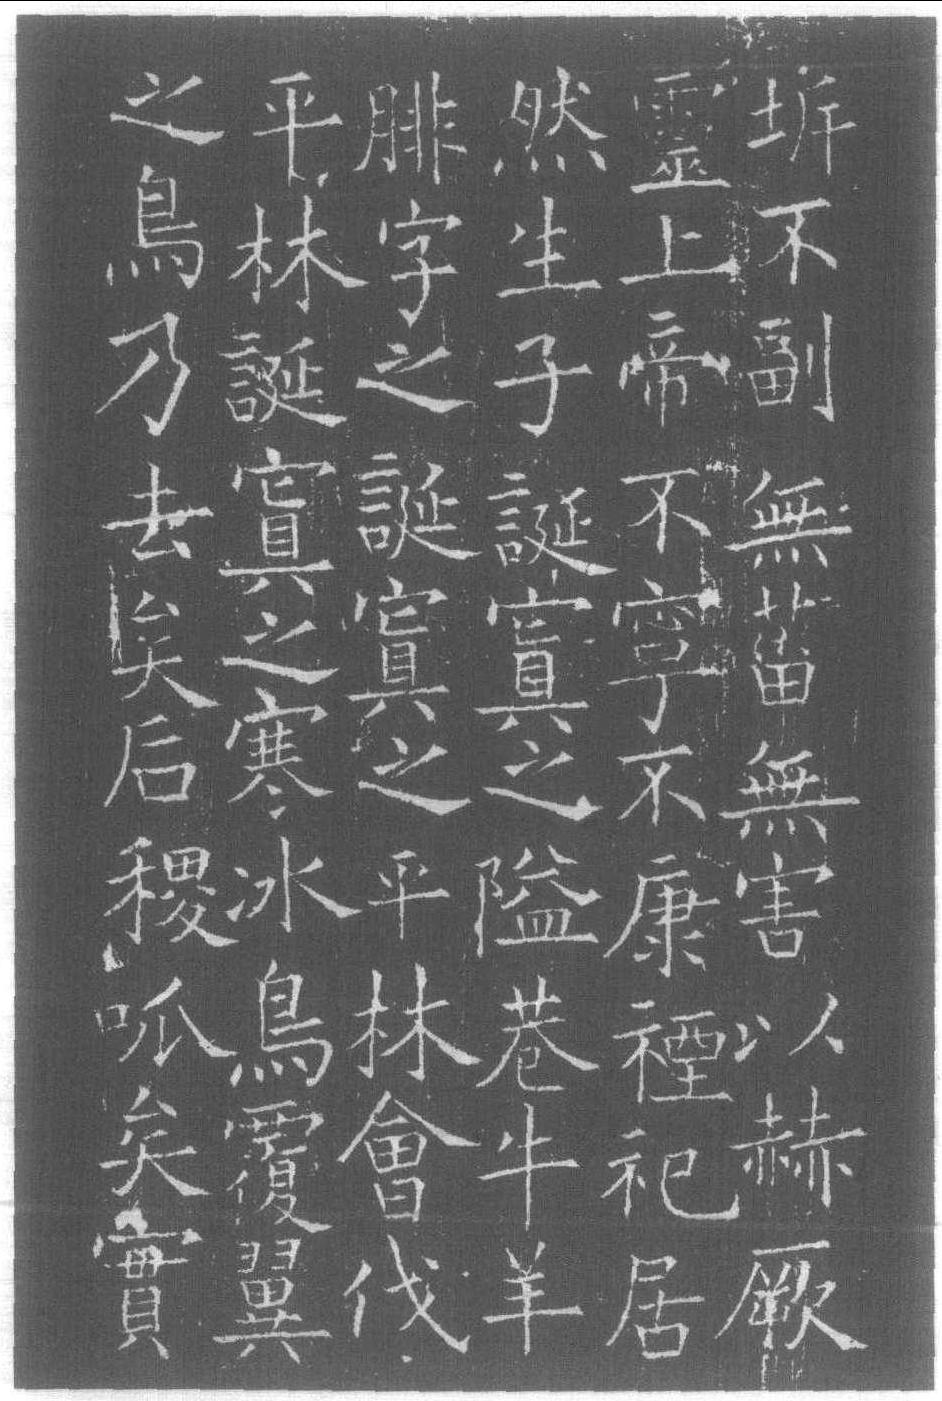 坼不副無菑無害以赫厥
靈上帝不寧不康禋祀居
然生子誕寘之隘巷牛羊
腓字之誕寘之平林會伐
平林誕寘之寒冰鳥覆翼
之鳥乃去矣后稷呱矣實